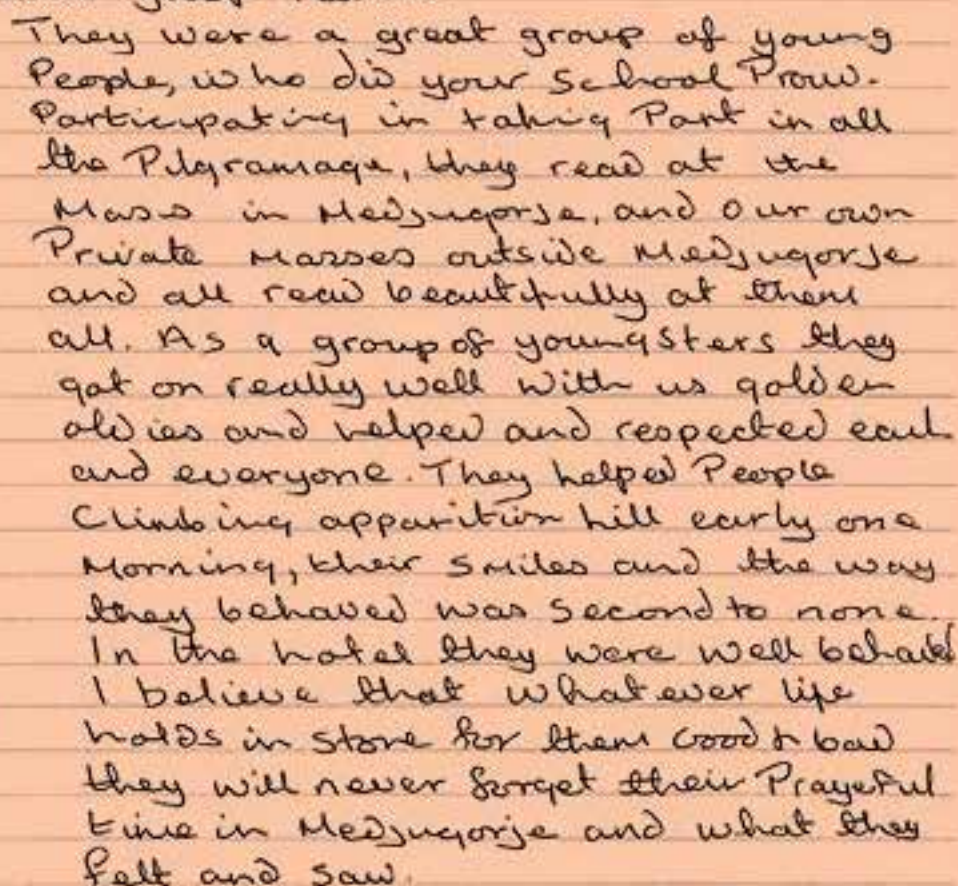 They were a great group of young
People, who did your School Proud.
Participating in taking Part in all
the Pilgramage, they read at the
Mass in Medjugorje, and our own
Private Masses outside Medjugorje
and all read beautifully at them
all. As a group of youngsters they
got on really well with us golden
oldies and helped and respected each
and everyone. They helped People
Climbing apparition hill early one
Morning, their smiles and the way
they behaved was second to none.
In the hotel they were well behaved
I believe that whatever life
holds in store for them Good & bad
they will never forget their Prayerful
time in Medjugorje and what they
felt and saw.